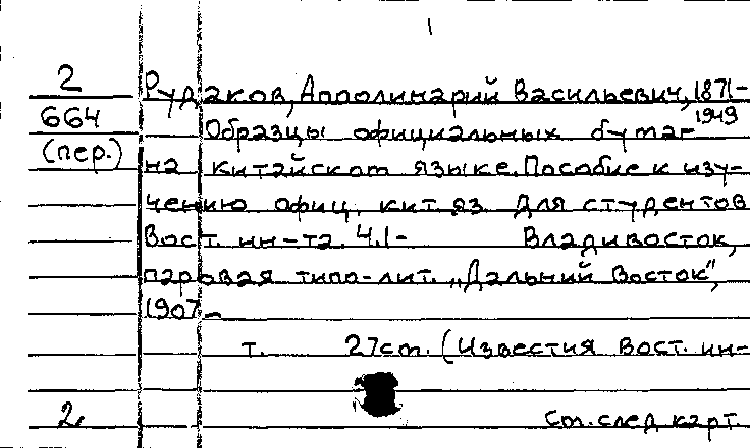 1
2 Рудаков, Апполинарий Васильевич, 1871-
664 1949
Образцы официальных бумаг
(пер.) на китайском языке. Пособие к изу-
чению офиц. кит. яз. для студентов
Вост. ин-та. Ч.1- Владивосток,
паровая типо-лит. „Дальний Восток",
1907-
т. 27 cm. (Известия Вост. ин-
2. См. след карт.